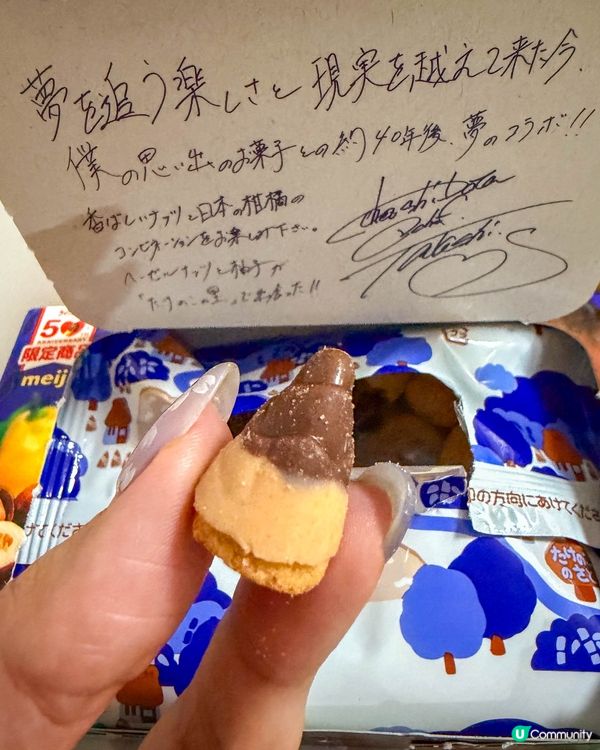 夢を追う楽しさと現実を越えて来た今、
僕の思い出のお菓子との約40年後、夢のコラボ!!
香ばしいナッツと日本の柑橘の
コンビネーションをお楽しみ下さい。
ヘーゼルナッツと柚子が
"たけのこの里"で出会った!!
50
ANNIVERSARY
限定商品
meiji
の方向にあけてくださ
けてくださ
たけの
のさ
U Community